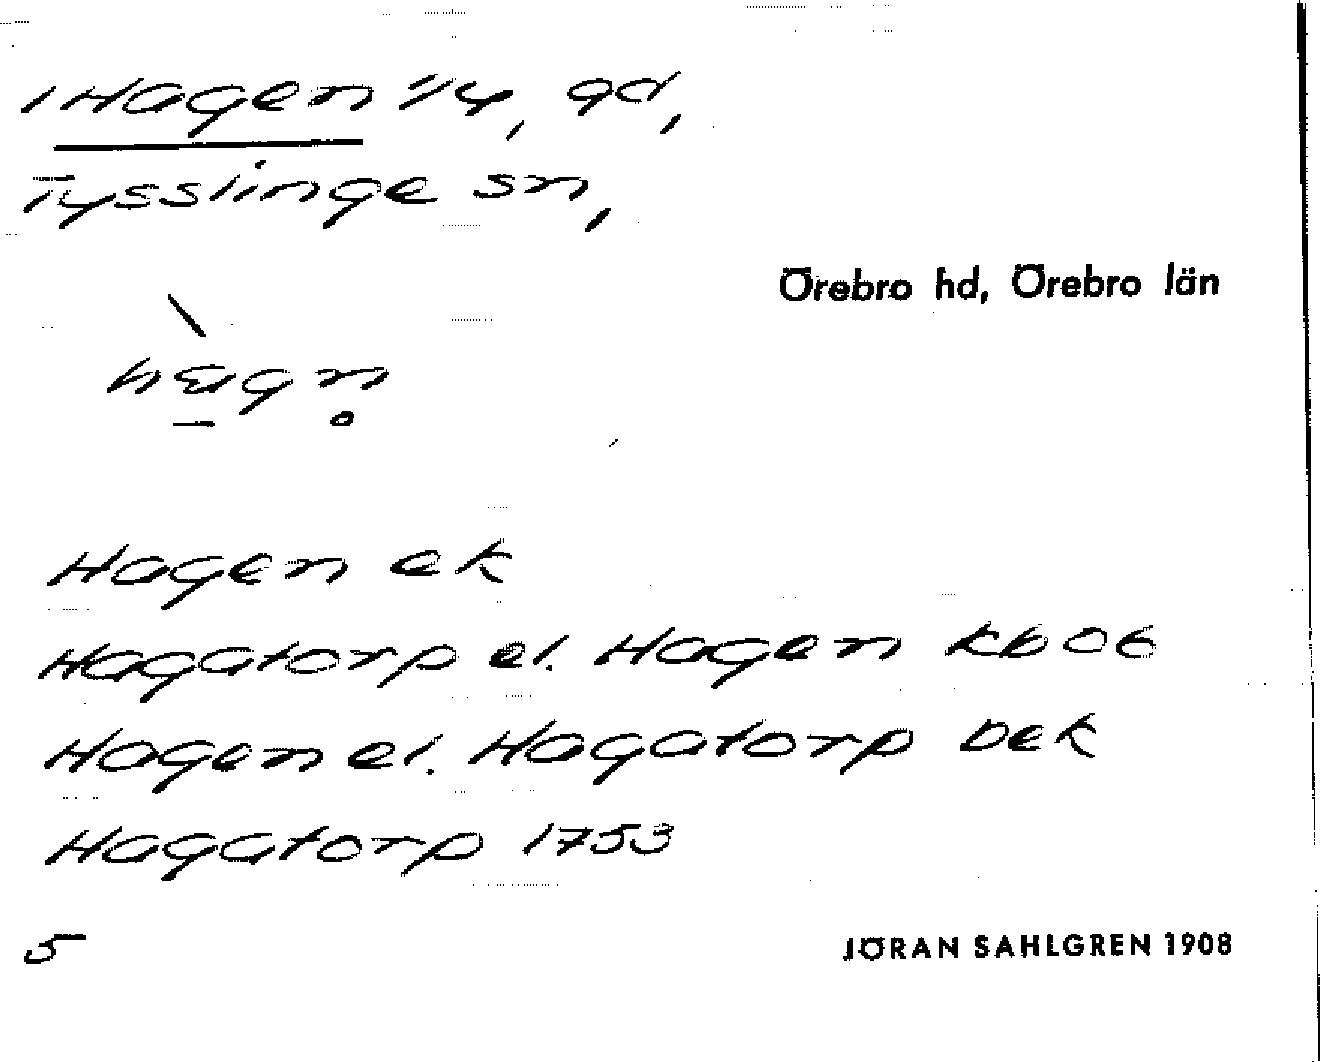 1 Hagen 1/4, gd,
Tysslinge sn,
Örebro hd, Örebro län
Hagen ek
Hagatorp el. Hagen kb 06
Hagen el. Hagatorp Dek
Hagatorp 1753
5
JÖRAN SAHLGREN 1908